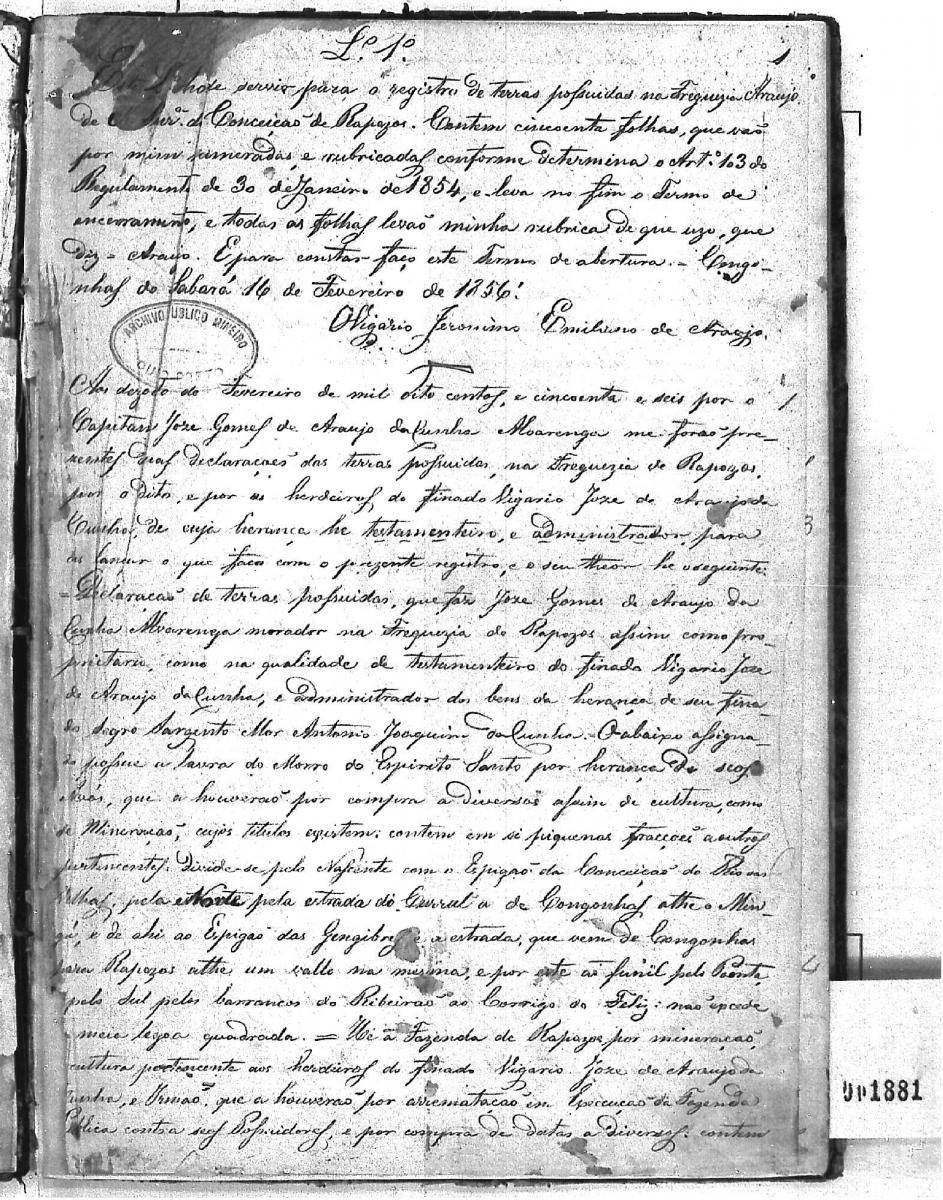 L.o 1.o
1
Este L.o hade servir para o registro de terras possuidas na Freguezia Araujo
de N. Snr.a da Conceiçaõ de Rapozos. Contem cincoenta folhas, que vaõ
por mim numeradas e rubricadas conforme determina o Art.o 103 do
Regulamento de 30 de Janeiro de 1854, e leva no fim o Termo de
encerramento, e todas as folhas levaõ minha rubrica de que uzo, que
diz - Araujo. E para constar faço este Termo de abertura. - Congo-
nhas do Sabará 16 de Fevereiro de 1856.
O Vigario Jeronimo Emiliano de Araujo.
ARCHIVO PUBLICO MINEIRO
OURO PRETO
Aos dezoto de Fevereiro de mil oito centos, e cincoenta e seis por o
1
Capitam Joze Gomes de Araujo da Cunha Alvarenga me foraõ pre-
zentes duas declaraçoẽs das terras possuidas na Freguezia de Rapozos
por o dito, e por os herdeiros do finado Vigario Joze de Araujo da
Cunha, de cuja herança he testamenteiro, e administrador, para
3
as lancar o que faço com o prezente registro, e o seu theor he o seguinte.
- Declaraçaõ de terras possuidas, que faz Joze Gomes de Araujo da
Cunha Alvarenga morador na Freguezia de Rapozos assim como pro
prietario, como na qualidade de testamenteiro do finado Vigario Joze
de Araujo da Cunha, e administrador dos bens da herança de seu fina-
do sogro Sargento Mor Antonio Joaquim da Cunha. - O abaixo assigna-
do possue a lavra do Morro do Espirito Santo por herança de seos
Avós, que a houveraõ por compra a diversos assim de cultura, como
de Mineraçaõ, cujos titulos existem: contem em si piquenas fracçoẽs a outros
pertencentes: divide-se pelo Nascente com o Espigaõ da Conceiçaõ do Rio das
Velhas, pela Norte pela estrada do Curral a de Congonhas athe o Min-
gú, e de ahi ao Espigaõ das Gengibres e a estrada, que vem de Congonhas
para Rapozos athe um vallo na mesma, e por este ao funil pelo Poente,
pelo Sul pelos barrancos do Ribeiraõ ao Corrigo do Feliz: naõ excede
a meia legoa quadrada. = He a Fazenda de Rapozos por mineraçaõ,
cultura pertencente aos herdeiros do finado Vigario Joze de Araujo da
Cunha, e Irmaõ, que a houveraõ por arrematação em Execuçaõ da Fazenda
Publica contra seos Possuidores, e por compra de datas a diversos: contem
4
OP1881